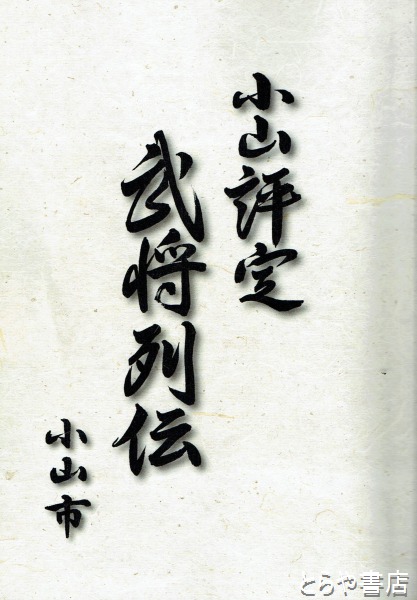 小山評定
武将列伝
小山市
とらや書店